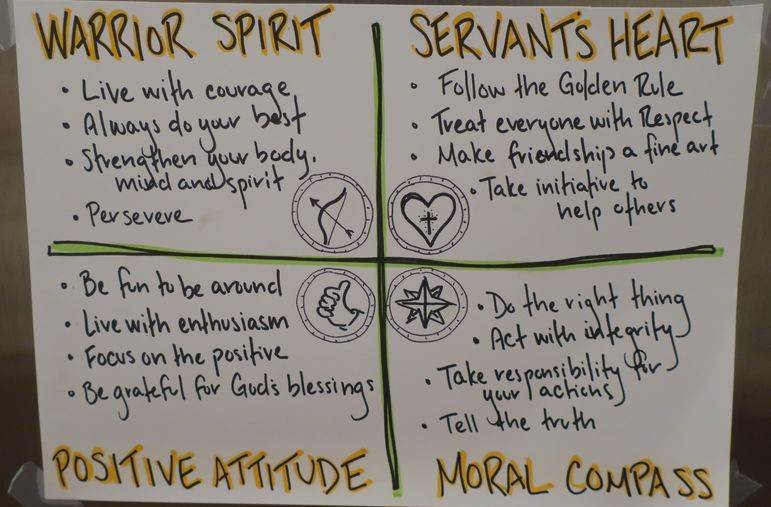 WARRIOR SPIRIT
• Live with courage
• Always do your best
• Strengthen your body,
mind and spirit
• Persevere
SERVANT'S HEART
• Follow the Golden Rule
• Treat everyone with Respect
• Make friendship a fine art
• Take initiative to
help others
• Be fun to be around
• Live with enthusiasm
• Focus on the positive
• Be grateful for God's blessings
POSITIVE ATTITUDE
• Do the right thing
• Act with integrity
• Take responsibility for
your actions
• Tell the truth
MORAL COMPASS